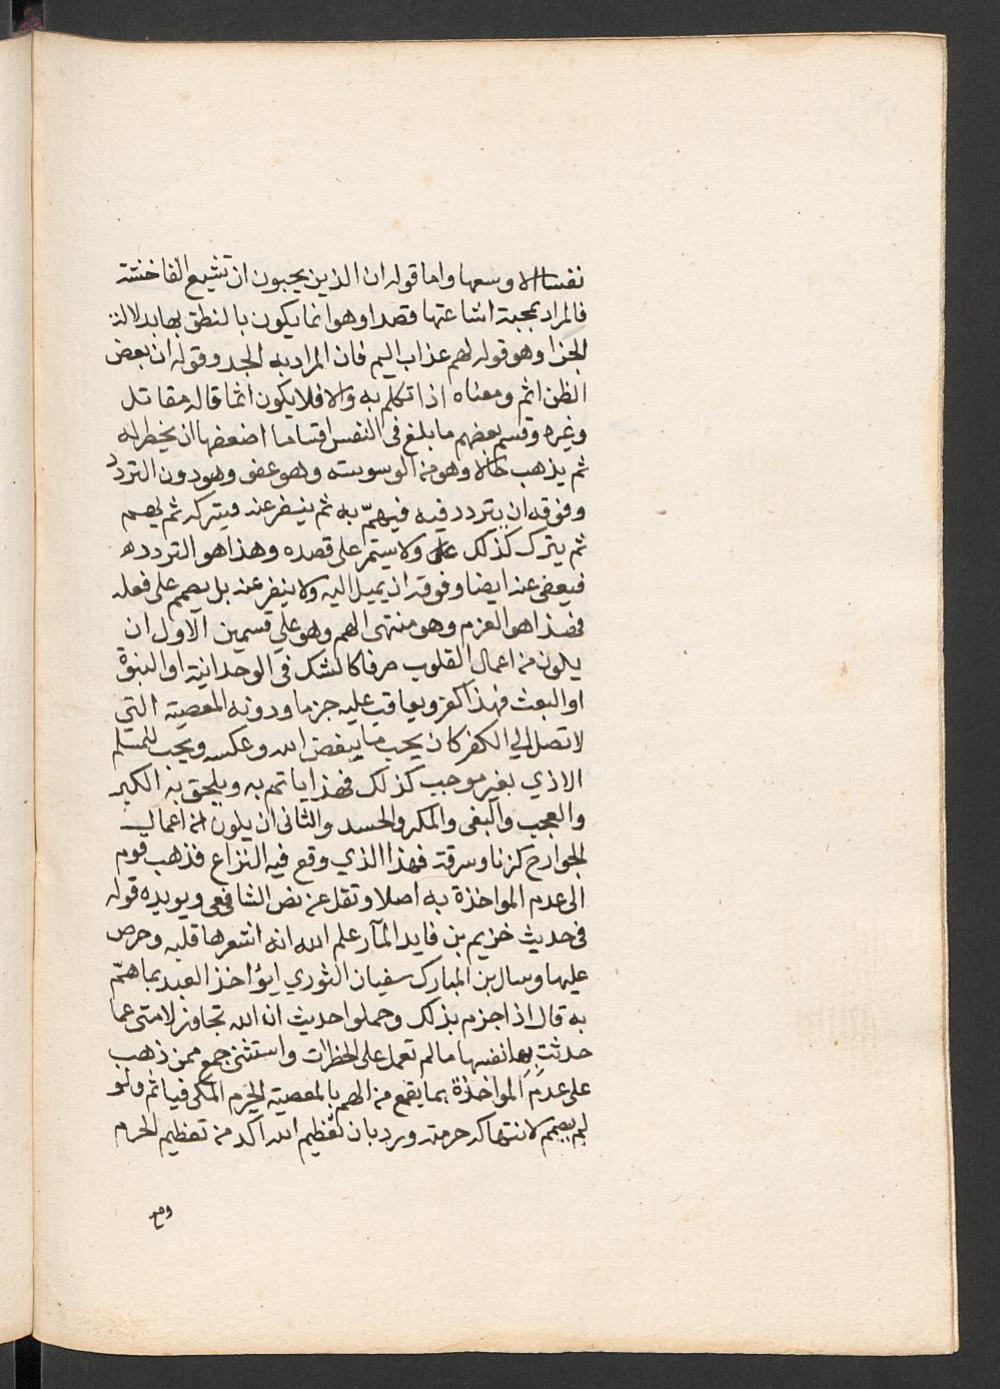 نفسا الا وسعها واما قوله ان الذين يحبون ان تشيع الفاحشة
فالمراد بمحبة اشاعتها قصدا وهو انما يكون بالنطق بها بدلالة
الجزا وهو قوله لهم عذاب اليم فان المراد به الحد وقوله ان بعض
الظن اثم ومعناه اذا تكلم به والا فلا يكون اثما قاله مقاتل
وغيره وقسم بعضهم ما بلغ في النفس اقساما اضعفها ان يخطر له
ثم يذهب حالا وهو من الوسوسه وهو عفو وهو دون التردد
وفوقه ان يتردد فيه فيهمّ به ثم ينفر عنه فيتركه ثم يهم
ثم يترك كذلك ولا يستمر على قصده وهذا هو التردد
فيعفى عنه ايضا وفوقه ان يميل اليه ولا ينفر عنه بل يصمم على فعله
فهذا هو العزم وهو منتهى الهم وهو علي قسمين الاول ان
يكون من اعمال القلوب صرفا كالشك في الوحدانية او النبوة
او البعث فهذا كفر ويعاقب عليه جزما ودونه المعصية التي
لا تصل الي الكفر كان يحب ما يبغض الله وعكسه ويحب للمسلم
الاذي بغير موجب كذلك فهذا ياثم به ويلحق به الكبر
والعجب والبغى والمكر والحسد والثانى ان يكون من اعمال
الجوارح كزنا وسرقة فهذا الذي وقع فيه النزاع فذهب قوم
الى عدم المواخذة به اصلا ونقل عن نص الشافعى ويويده قوله
فى حديث خزيم بن فايد المآر علم الله انه اشعرها قلبه وحرص
عليها وسال بن المبارك سفيان الثوري ايؤاخذ العبد بما همّ
به قال اذا جزم بذلك وحملوا حديث ان الله تجاوز لامتى عما
حدثت به انفسها ما لم تعمل على الخطرات واستثنى جمع ممن ذهب
على عدم المواخذة بما يقع من الهم بالمعصية الحرم المكى فياثم ولو
لم يصمم لانتهاكه حرمته ورد بان تعظيم الله اكد من تعظيم الحرم
ومع